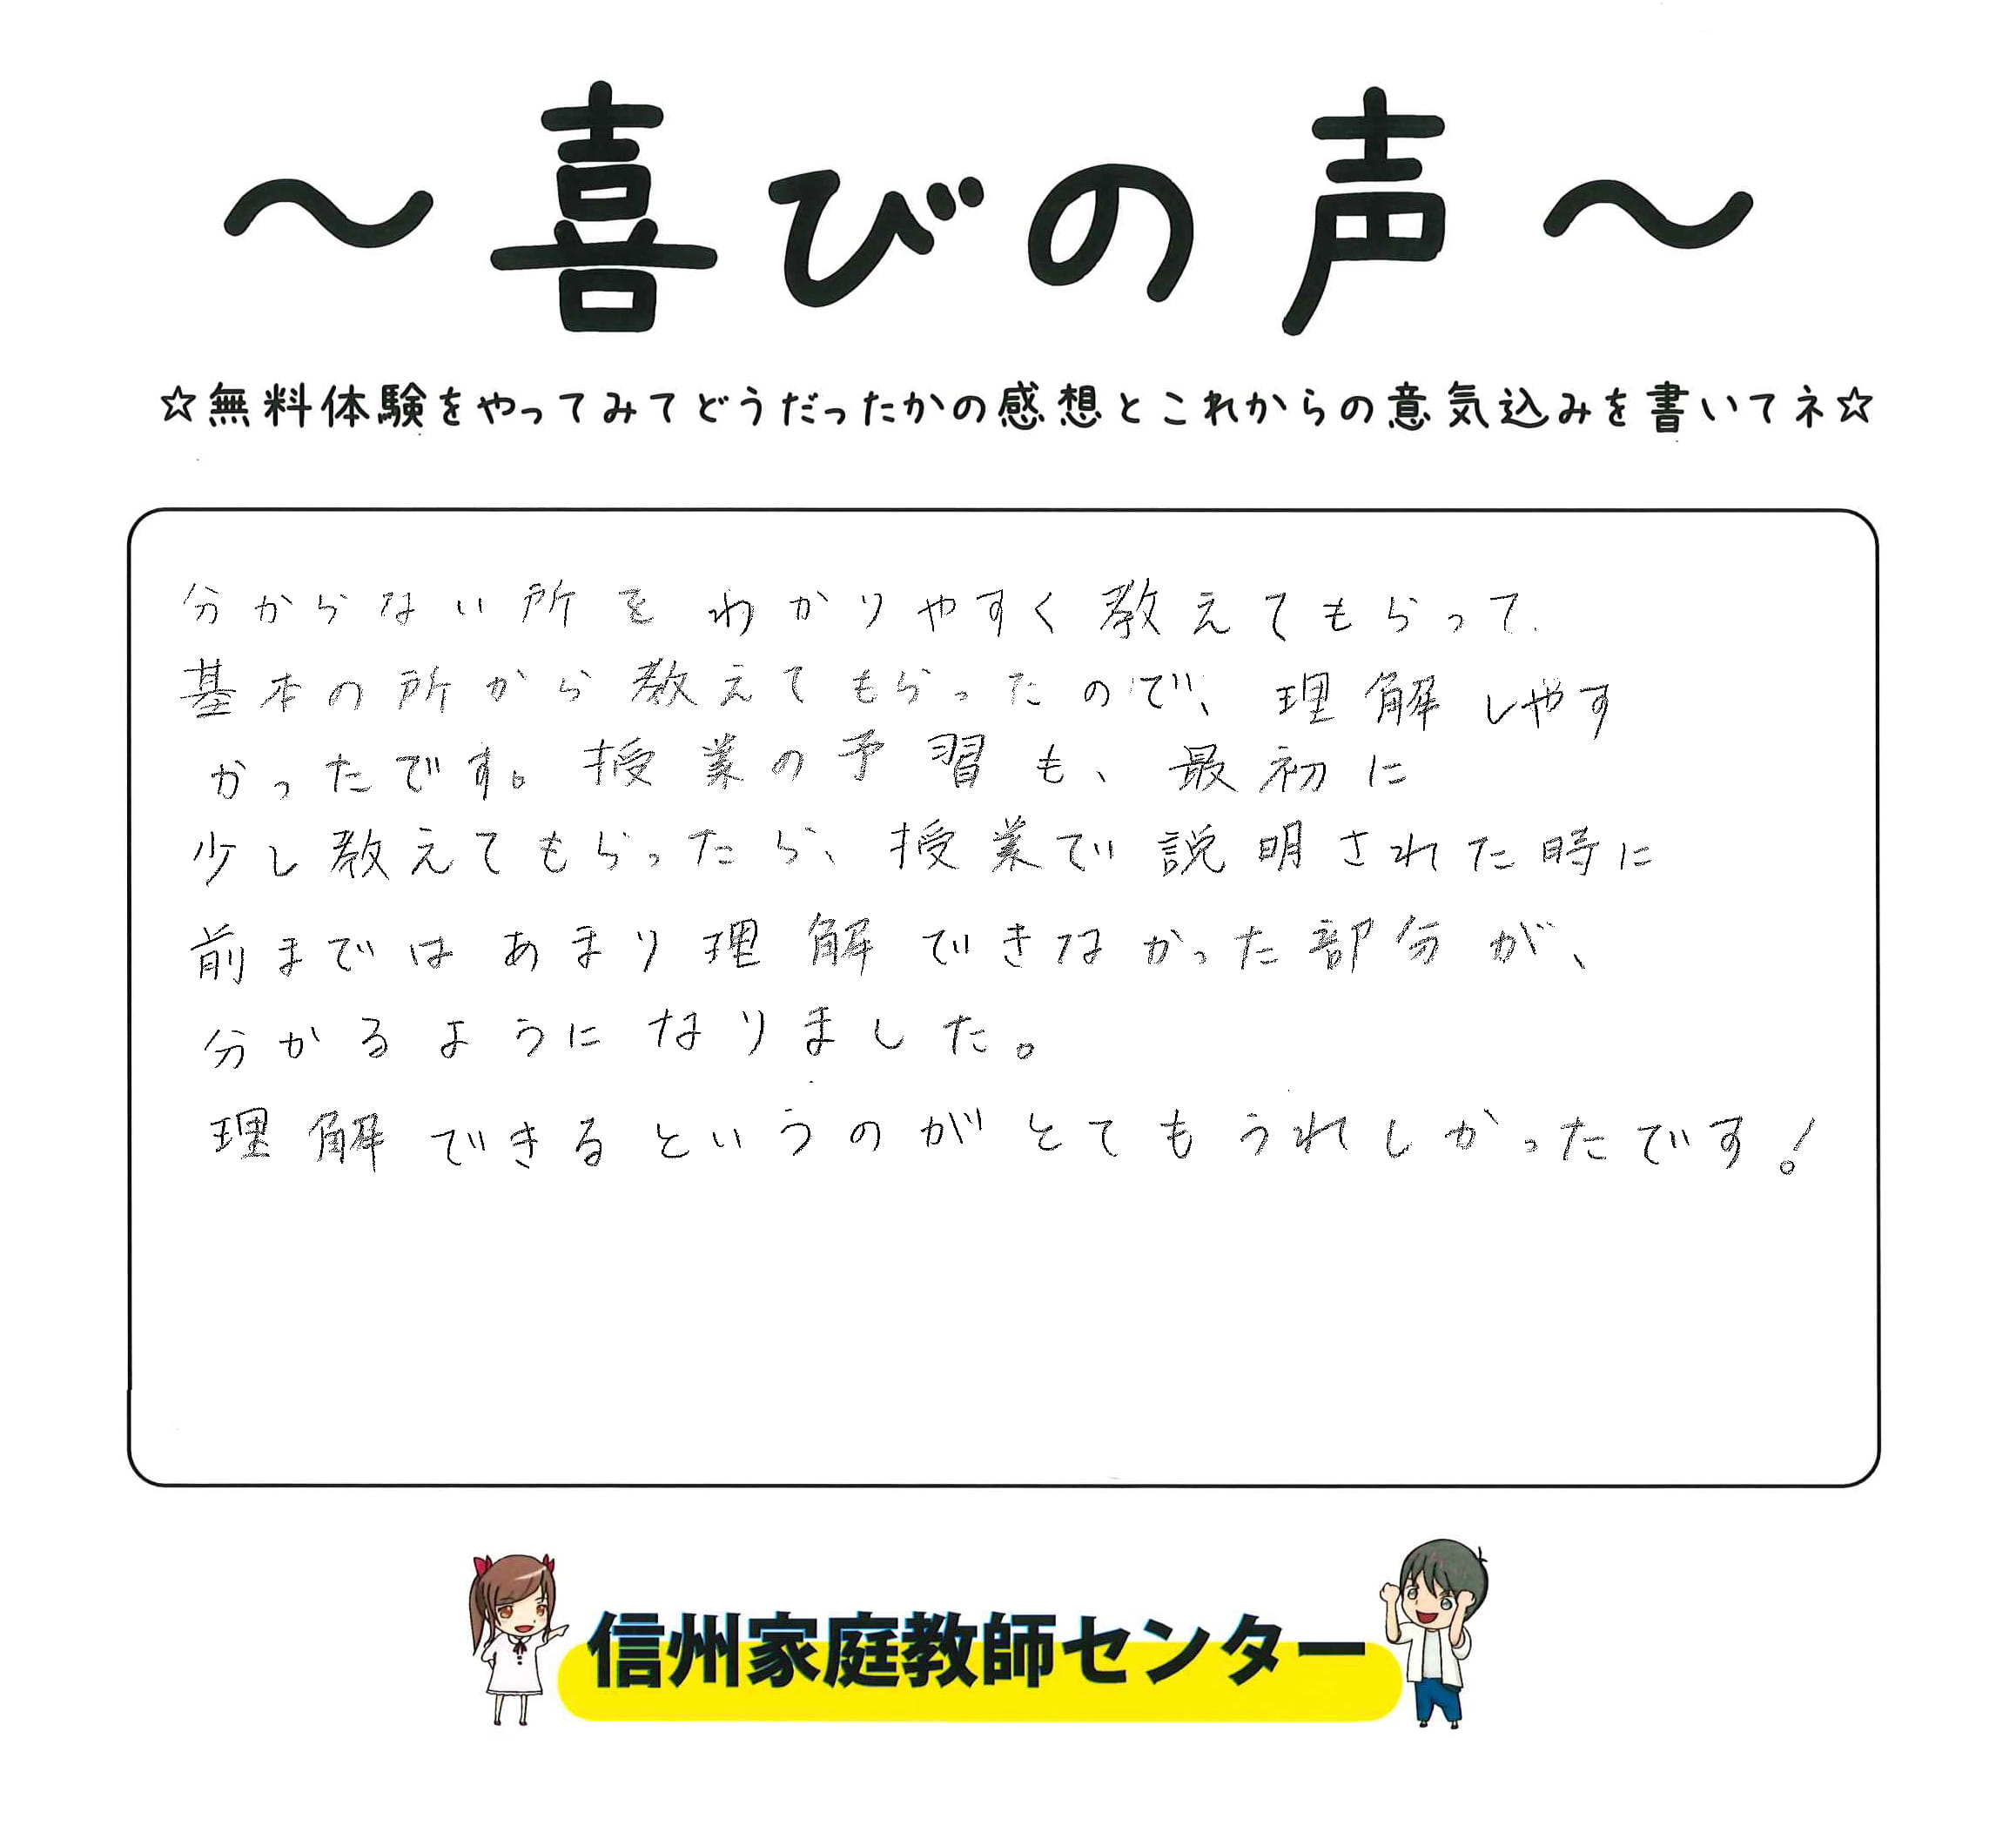 ～喜びの声～
☆無料体験をやってみてどうだったかの感想とこれからの意気込みを書いてネ☆
分からない所をわかりやすく教えてもらって
基本の所から教えてもらったので、理解しやす
かったです。授業の予習も、最初に
少し教えてもらったら、授業で説明された時に
前まではあまり理解できなかった部分が、
分かるようになりました。
理解できるというのがとてもうれしかったです!
信州家庭教師センター